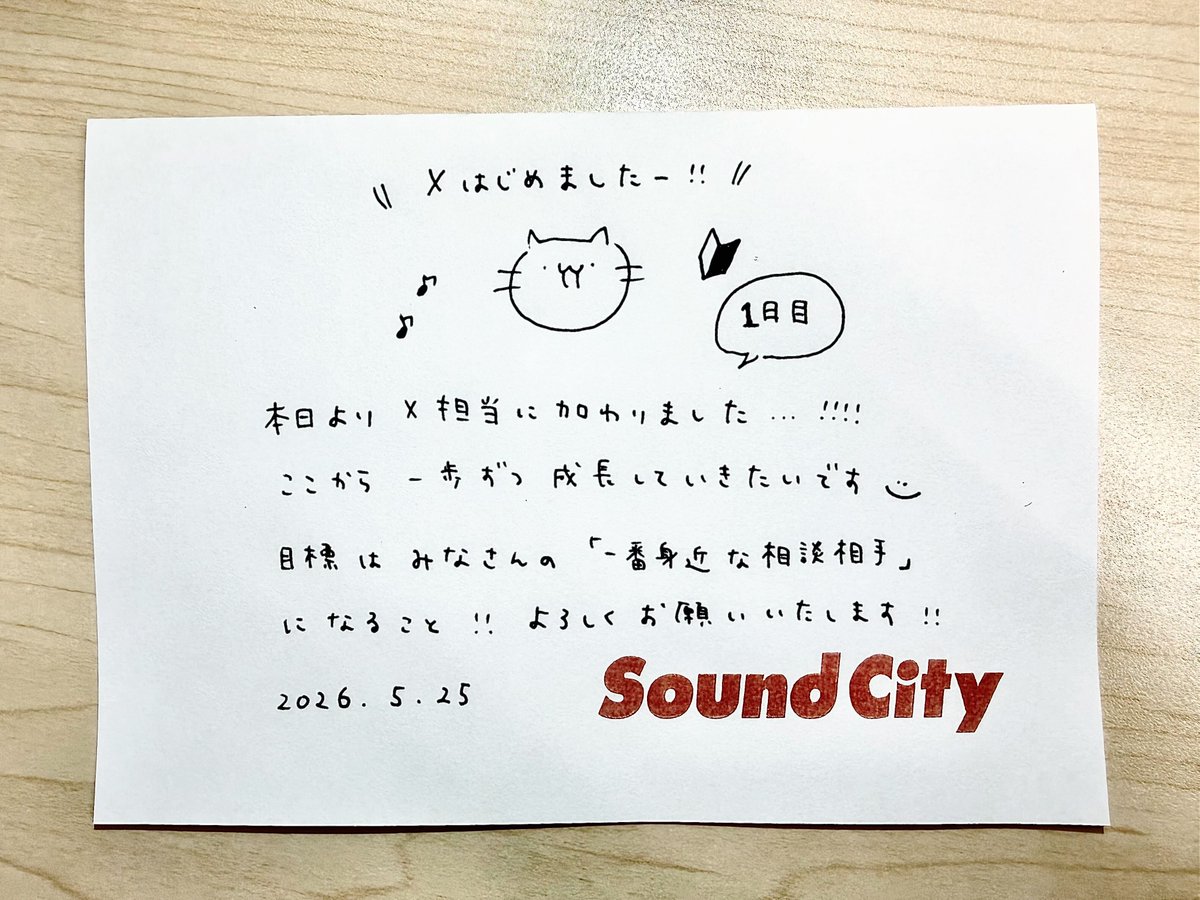 \\ Xはじめましたー!! //
1日目
本日より X担当に加わりました...!!!!
ここから 一歩ずつ 成長していきたいです
目標は みなさんの「一番身近な相談相手」
になること!! よろしくお願いいたします!!
2026.5.25
Sound City